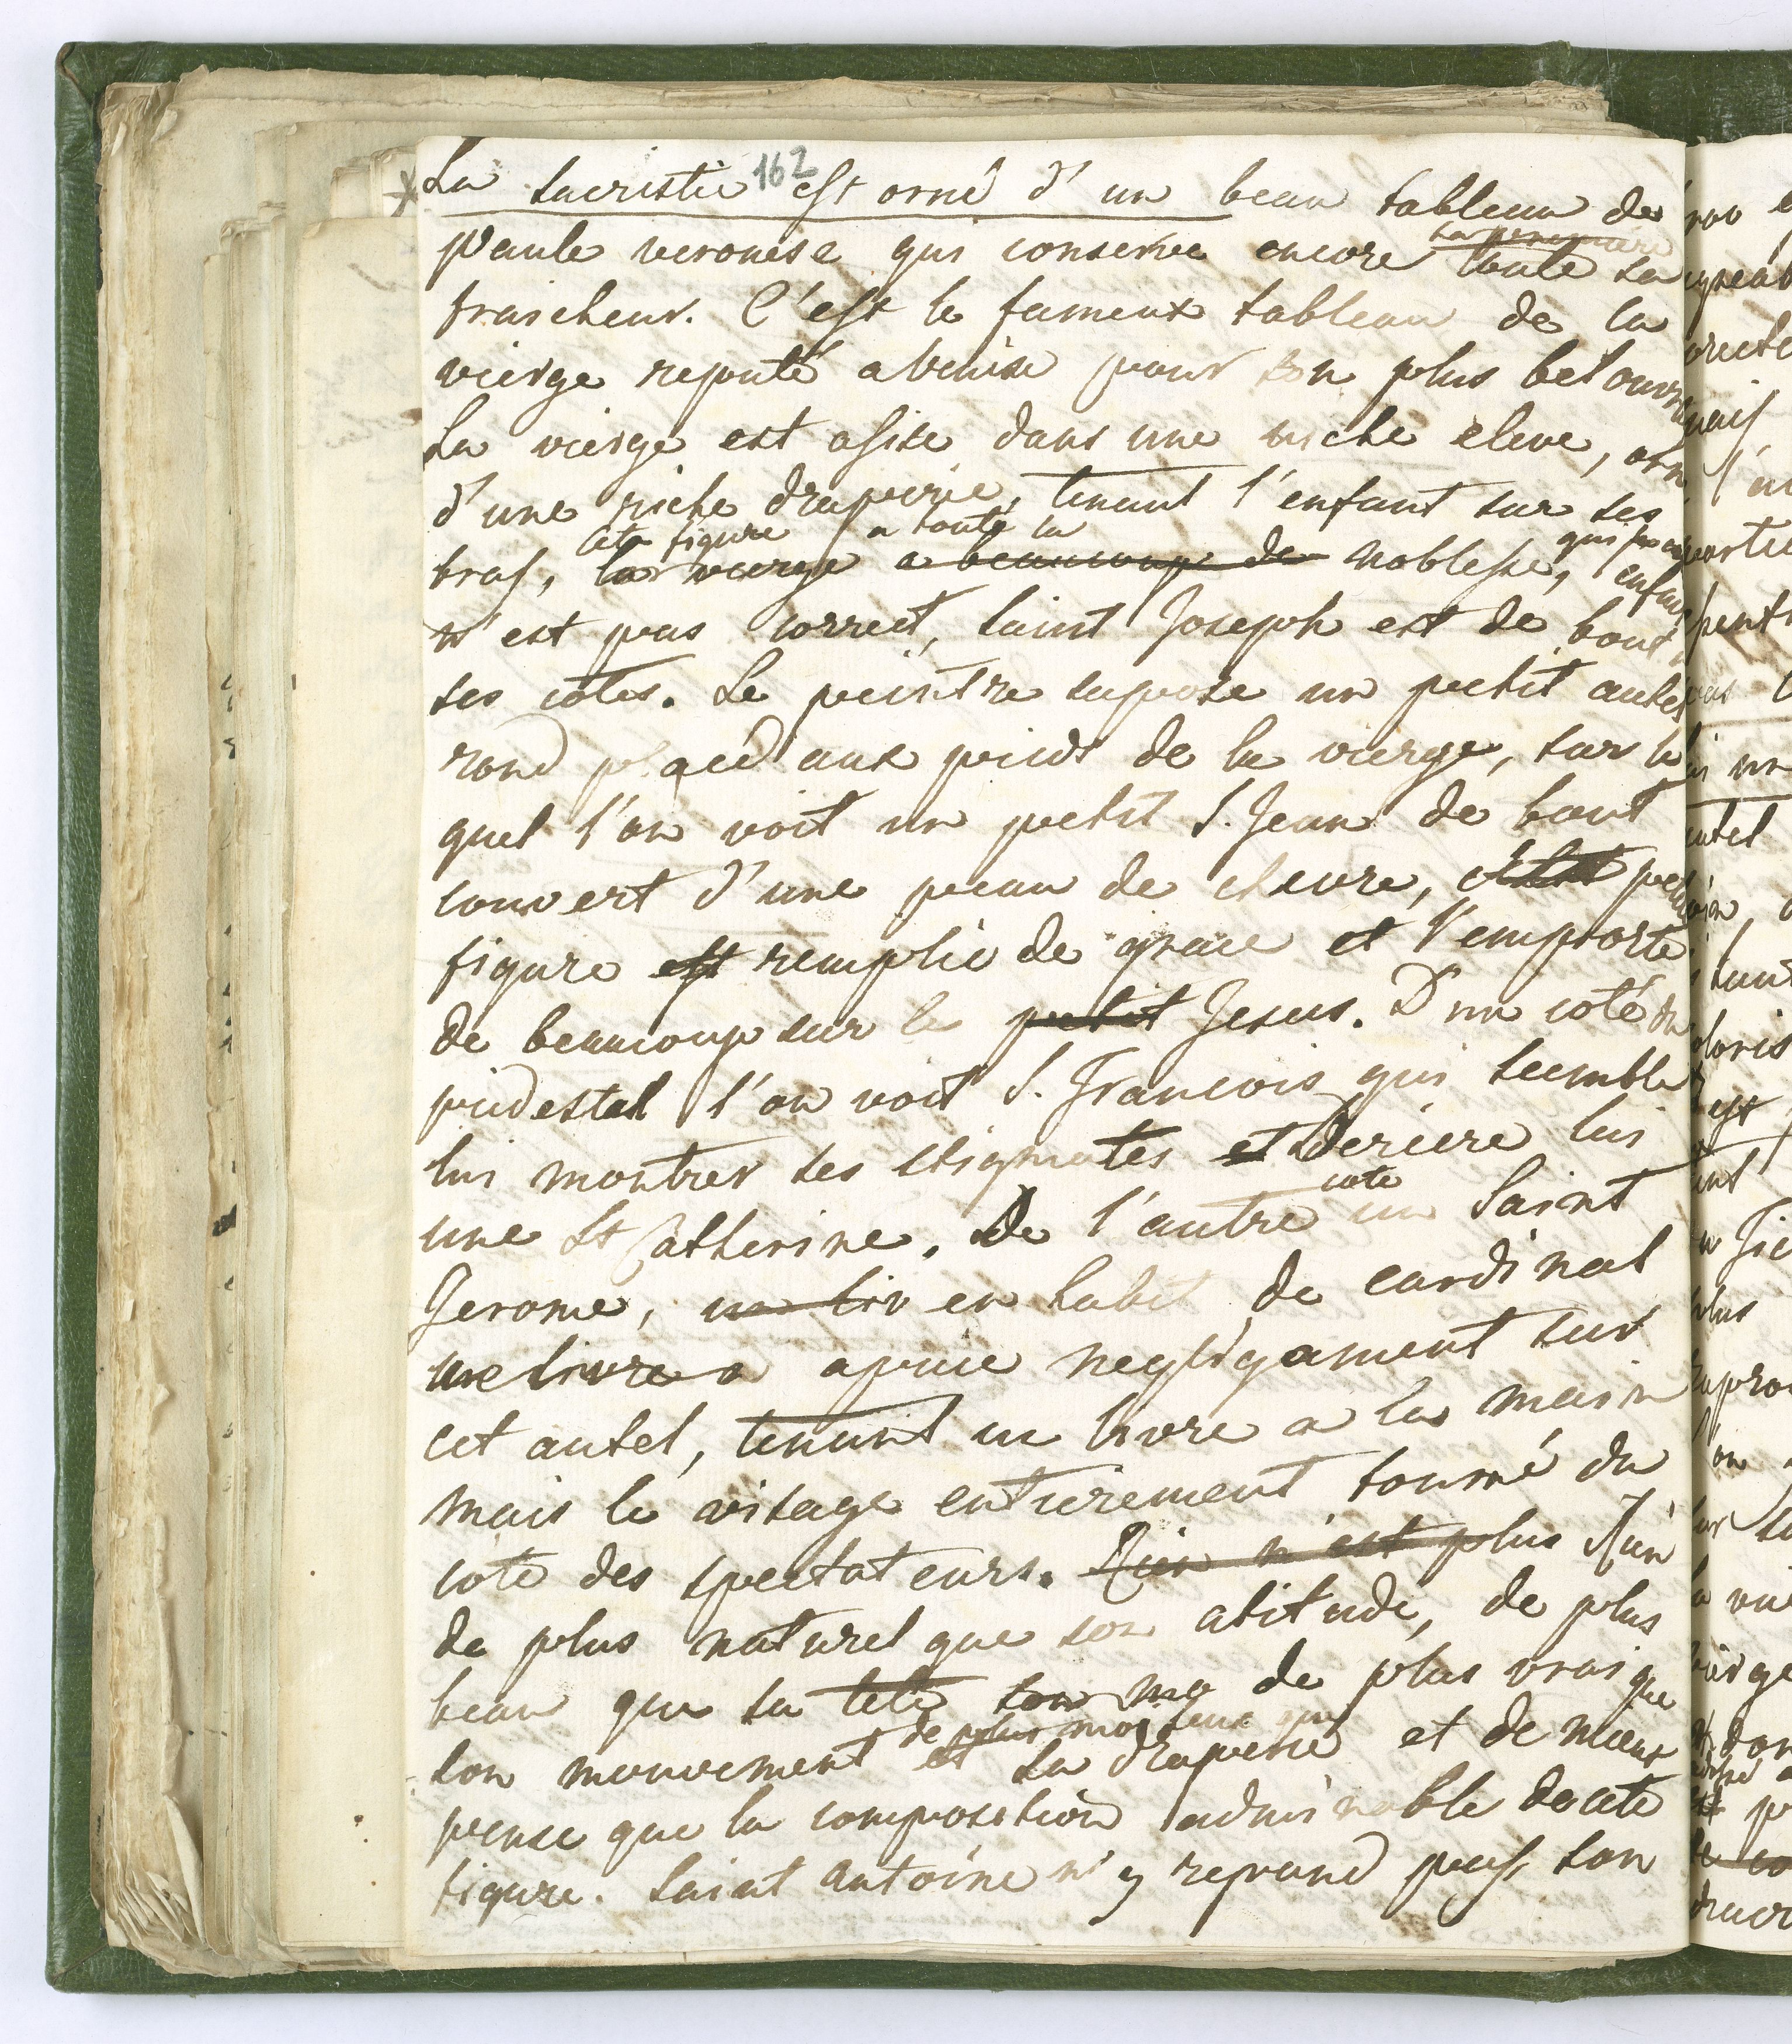 162
La sacristie est orné d'un beau tableau de
Paule veronese qui conserve encore toute sa
sa premiere
fraicheur. C'est le fameux tableau de la
vierge reputé a Venise pour son plus bel ouvra
La vierge est assise dans une niche eleve, orn
d'une riche draperie, tenant l'enfant sur ses
cete figure a toute la
bras, la vierge a beaucoup de noblesse, enfant
n'est pas correct, Saint Joseph est de bout
ses cotes. Le peintre supose un petit autel
rond placé aux pieds de la vierge, sur le
quel l'on voit un petit S. Jean de bout
couvert d'une peau de chevre,
figure est remplie de grace et l'emporte
de beaucoup sur le petit Jesus. D'un coté du
piedestal l'on voit S. Francois qui semble
lui montrer ses stigmates et deriere lui
cote
une St Catherine. De l'autre un Saint
Jerome, un liv en habit de cardinal
une livre a apuie negligament sur
cet autel, tenant un livre a la main
mais le visage entierement tourné du
coté des spectateurs. Rien n'est plus Rien
de plus naturel que son atitude, de plus
beau que sa tete son mo de plus vrai que
de plus moeleux que
son mouvement et sa draperie et de mieux
pensé que la composition admirable de cete
figure. Saint Antoine n'y repond pas, son